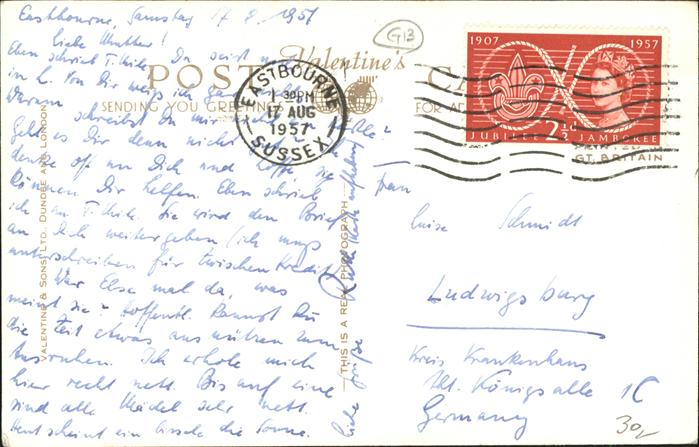 Eastbourne, Samstag 17 8 1957
Liebe Mutter! Du seist
Eben schrieb T. Thilde
in L. Von Dir weiß ich
Warum schreibst Du mir
Geht es Dir denn nicht
denke oft an Dich und hoffe sie
können Dir helfen. Eben schrieb
ich an T. Thilde. Sie wird den Brief
an Dich weitergeben (ich muß
unterschreiben für zwischen Kredit
War Else mal da, was
meint sie? Hoffentl. kannst Du
die Zeit etwas ausnützen zum
Ausruhen. Ich erhole mich
hier recht nett. Bis auf eine
sind alle Mädel sehr nett.
Heut scheint ein bissele die Sonne.
Liebe Grüße
POST CARD
Valentine's
SENDING YOU GREETINGS
FOR AD
VALENTINE & SONS, LTD., DUNDEE AND LONDON
THIS IS A REAL PHOTOGRAPH
G13
EASTBOURNE
1 30 PM
17 AUG
1957
SUSSEX
1907 1957
JUBILEE 2½D JAMBOREE
GT. BRITAIN
Frau
Luise Schmidt
Ludwigsburg
Kreis Krankenhaus
Abt. Königsalle 1C
Germany
30,-